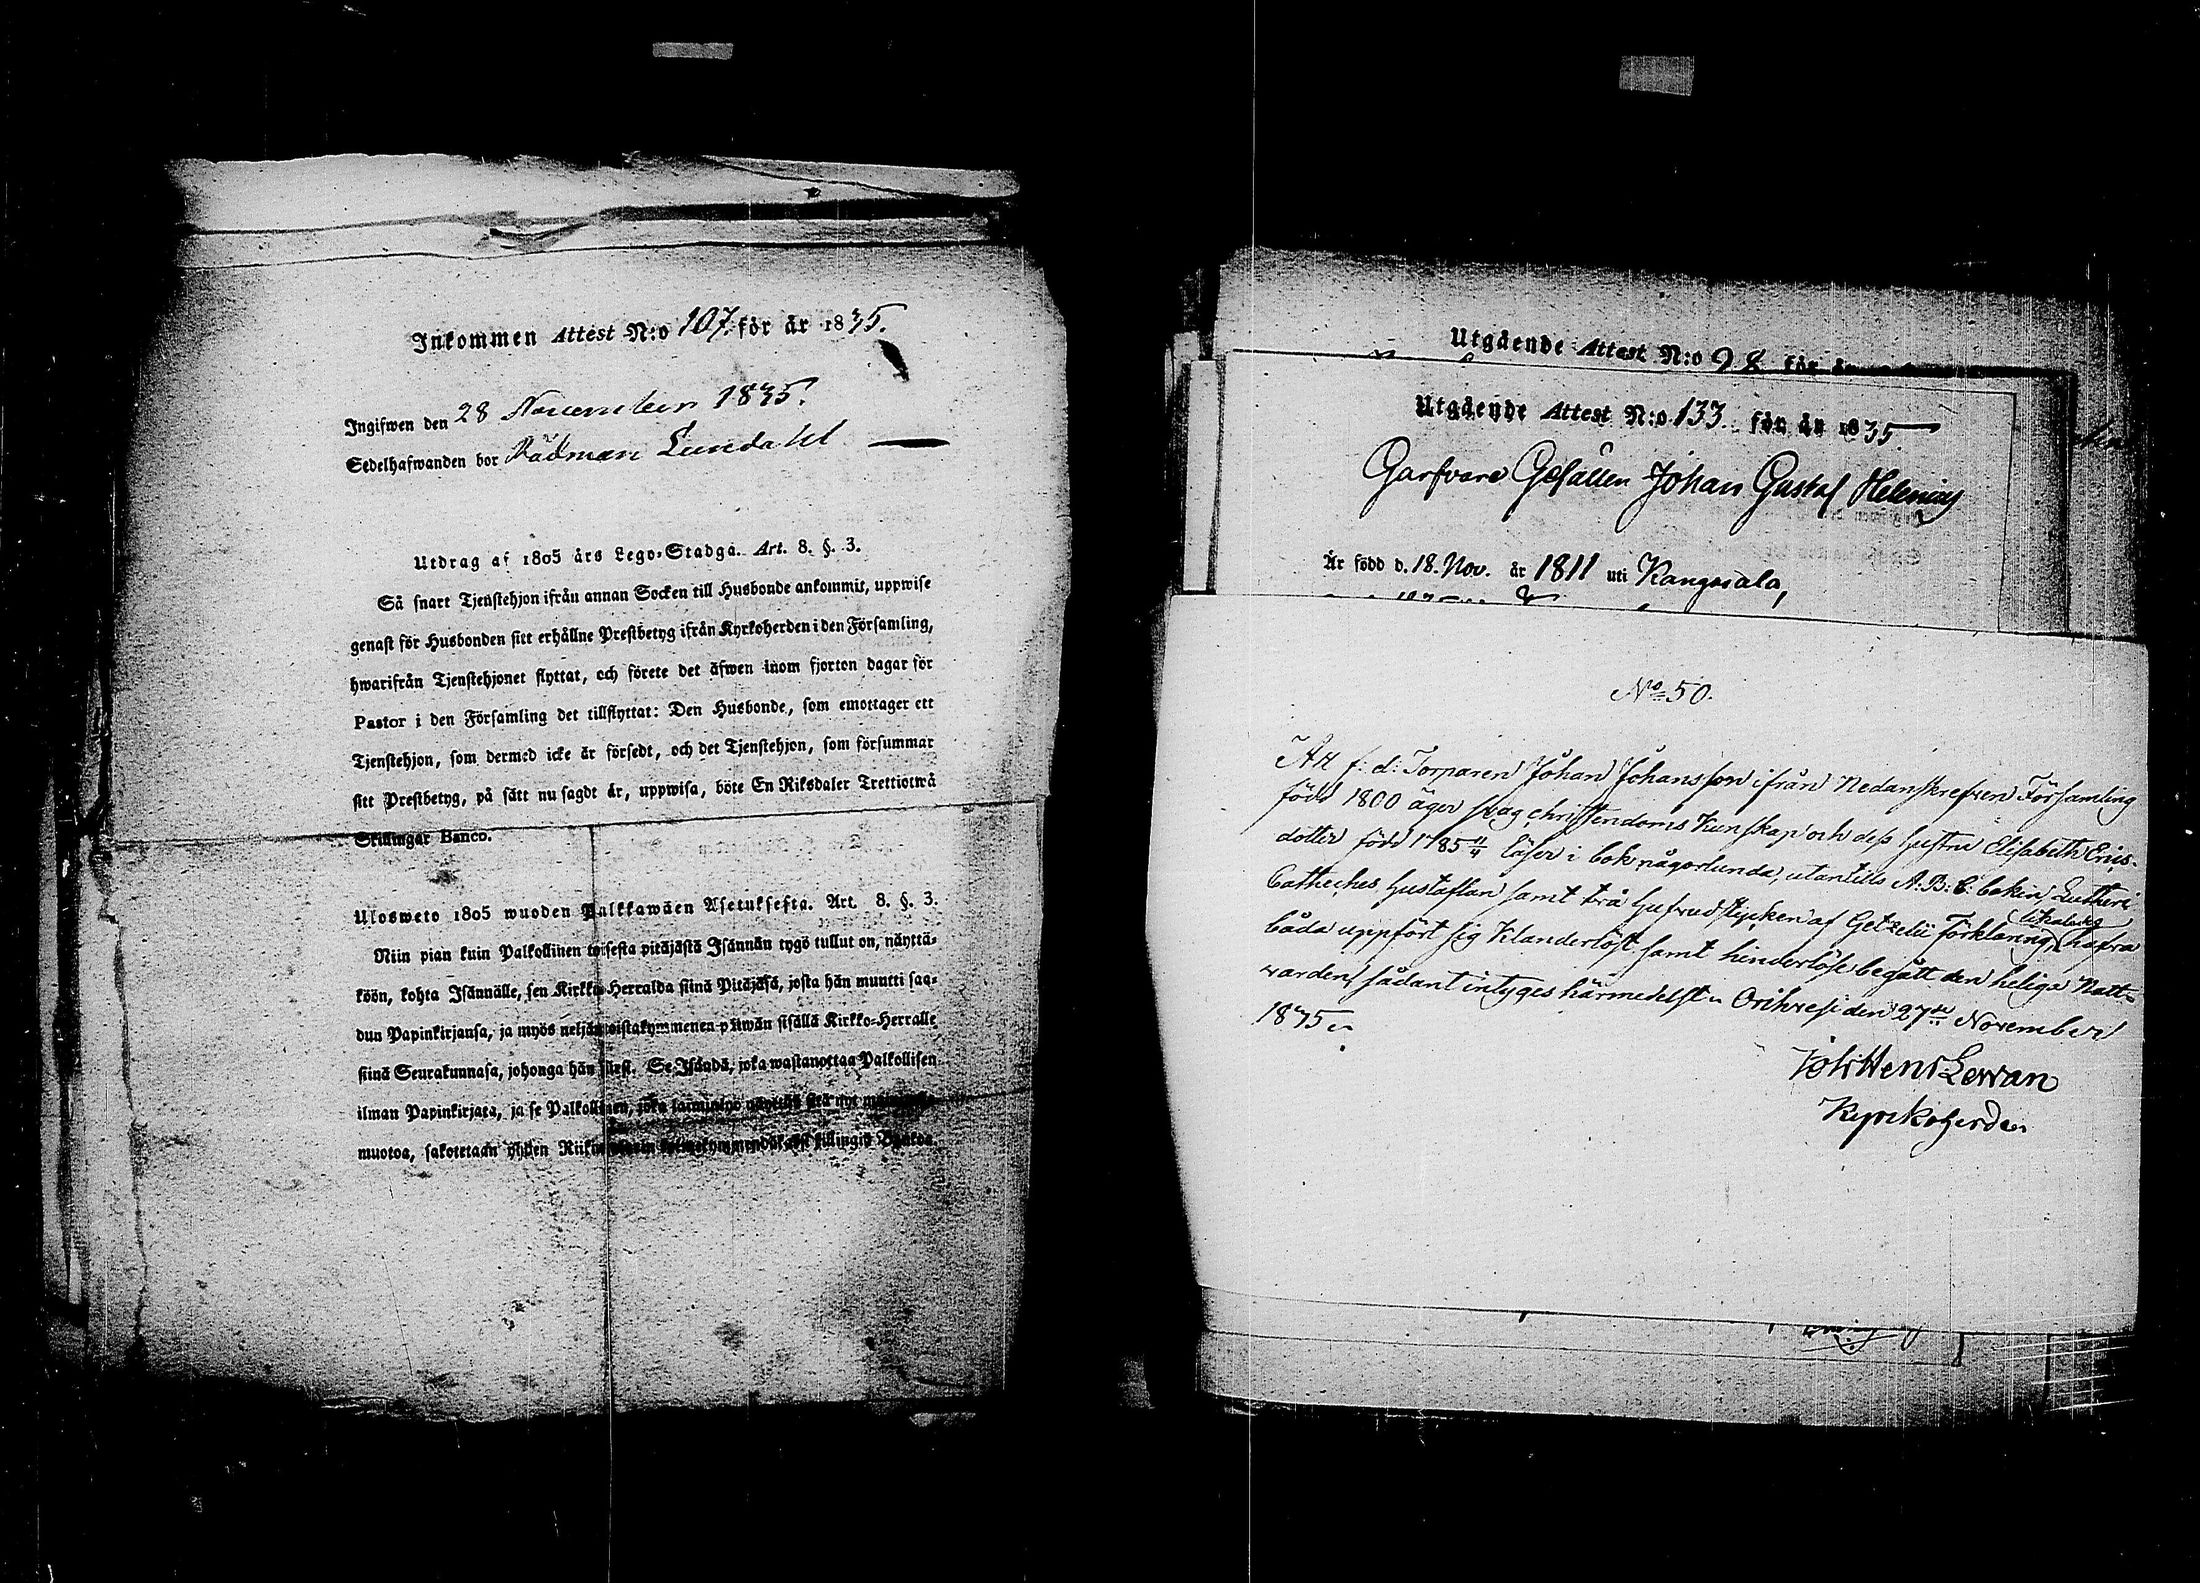 Inkommen Attest N:o 107. för år 1835.
Ingifwen den 28 November 1835.
Sedelhafwanden bor Rådman Lundahl
Utdrag af 1805 års Lego-Stadga. Art. 8. §. 3.
Så snart Tjenstehjon ifrån annan Socken till Husbonde ankommit, uppwise
genast för Husbonden sitt erhållne Prestbetyg ifrån Kyrkoherden i den Församling,
hwarifrån Tjenstehjonet flyttat, och förete det äfwen inom fjorton dagar för
Pastor i den Församling det tillflyttat: Den Husbonde, som emottager ett
Tjenstehjon, som dermed icke är försedt, och det Tjenstehjon, som försummar
sitt Prestbetyg, på sätt nu sagdt är, uppwisa, böte En Riksdaler Trettiotwå
Skillingar Banco.
Ulosweto 1805 wuoden Palkkawäen Asetuksesta. Art. 8. §. 3.
Niin pian kuin Palkollinen toisesta pitäjästä Isännän tygö tullut on, näyttä-
köön, kohta Isännälle, sen Kirkko-Herralda siinä Pitäjäsä, josta hän muutti saa-
dun Papinkirjansa, ja myös neljäntoistakymmenen päiwän sisällä Kirkko-Herralle
siinä Seurakunnasa, johonga hän siirsi. Se Isändä, joka wastanottaa Palkollisen
ilman Papinkirjata, ja se Palkollinen, joka laiminlyö näyttää sitä nyt
muotoa, sakotetaan yhden Riikin killingin Bankoa.
Utgående Attest N:o 98 för år
Utgående Attest N:o 133. för år 1835
Garfvare Gesällen Johan Gustaf Helenius
Är född d. 18. Nov. år 1811 uti Kangasala,
No 50.
Att f: d: Torparen Johan Johansson ifrån Nedanskrefven Församling
född 1800 äger svag christendoms Kunskap och dess hustru Elisabeth Erics-
dotter född 1785 11/4 läser i bok någorlunda, utantills A. B: C: boken, Lutheri
Catheches, hustaflan samt två hufvudstycken af Getzelii Förklaring, hafva
båda uppfört sig Klanderlöst samt hinderlöse begått den heliga Natt-
varden, sådant intyges härmedelst. Orihvesi den 27de November
1835.
Joh Henr Lewan
Kyrkoherden